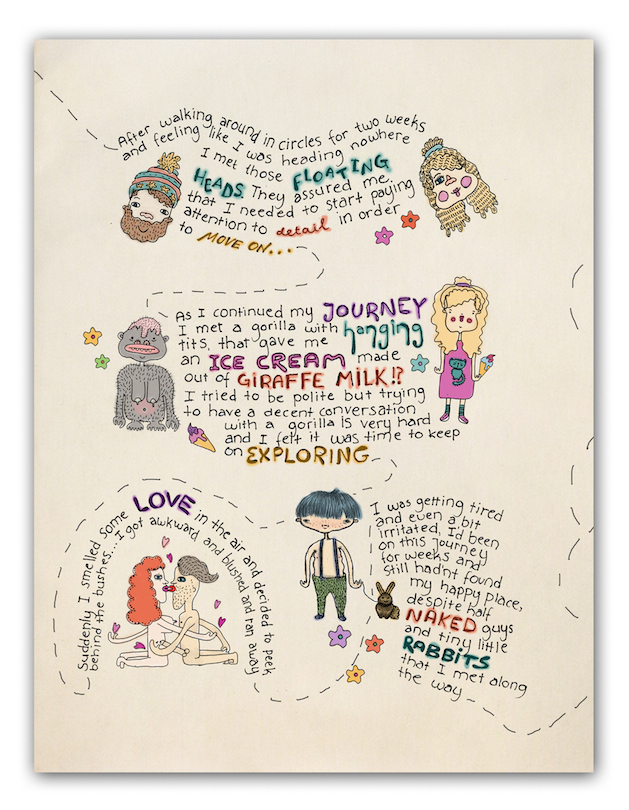 After walking around in circles for two weeks
and feeling like I was heading nowhere
I met those FLOATING
HEADS. They assured me
that I needed to start paying
attention to detail in order
to MOVE ON...
As I continued my JOURNEY
I met a gorilla with hanging
tits, that gave me
an ICE CREAM made
out of GIRAFFE MILK!?
I tried to be polite but trying
to have a decent conversation
with a gorilla IS very hard
and I felt it was time to keep
on EXPLORING
Suddenly I smelled some LOVE in the air and decided to peek
behind the bushes... I got awkward and blushed and ran away
I was getting tired
and even a bit
irritated, I'd been
on this journey
for weeks and
still had'nt found
my happy place,
despite half
NAKED guys
and tiny little
RABBITS
that I met along
the way